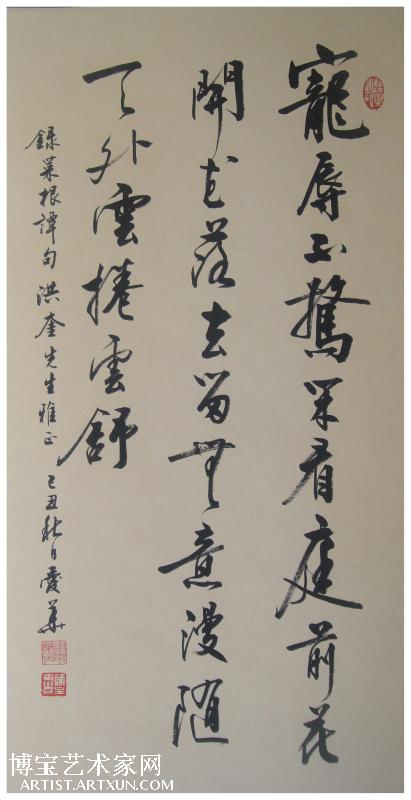 寵辱不驚閑看庭前花
開花落去留無意漫隨
天外雲捲雲舒
錄菜根譚句洪奎先生雅正 己丑秋日愛華
博宝艺术家网
ARTIST.ARTXUN.COM